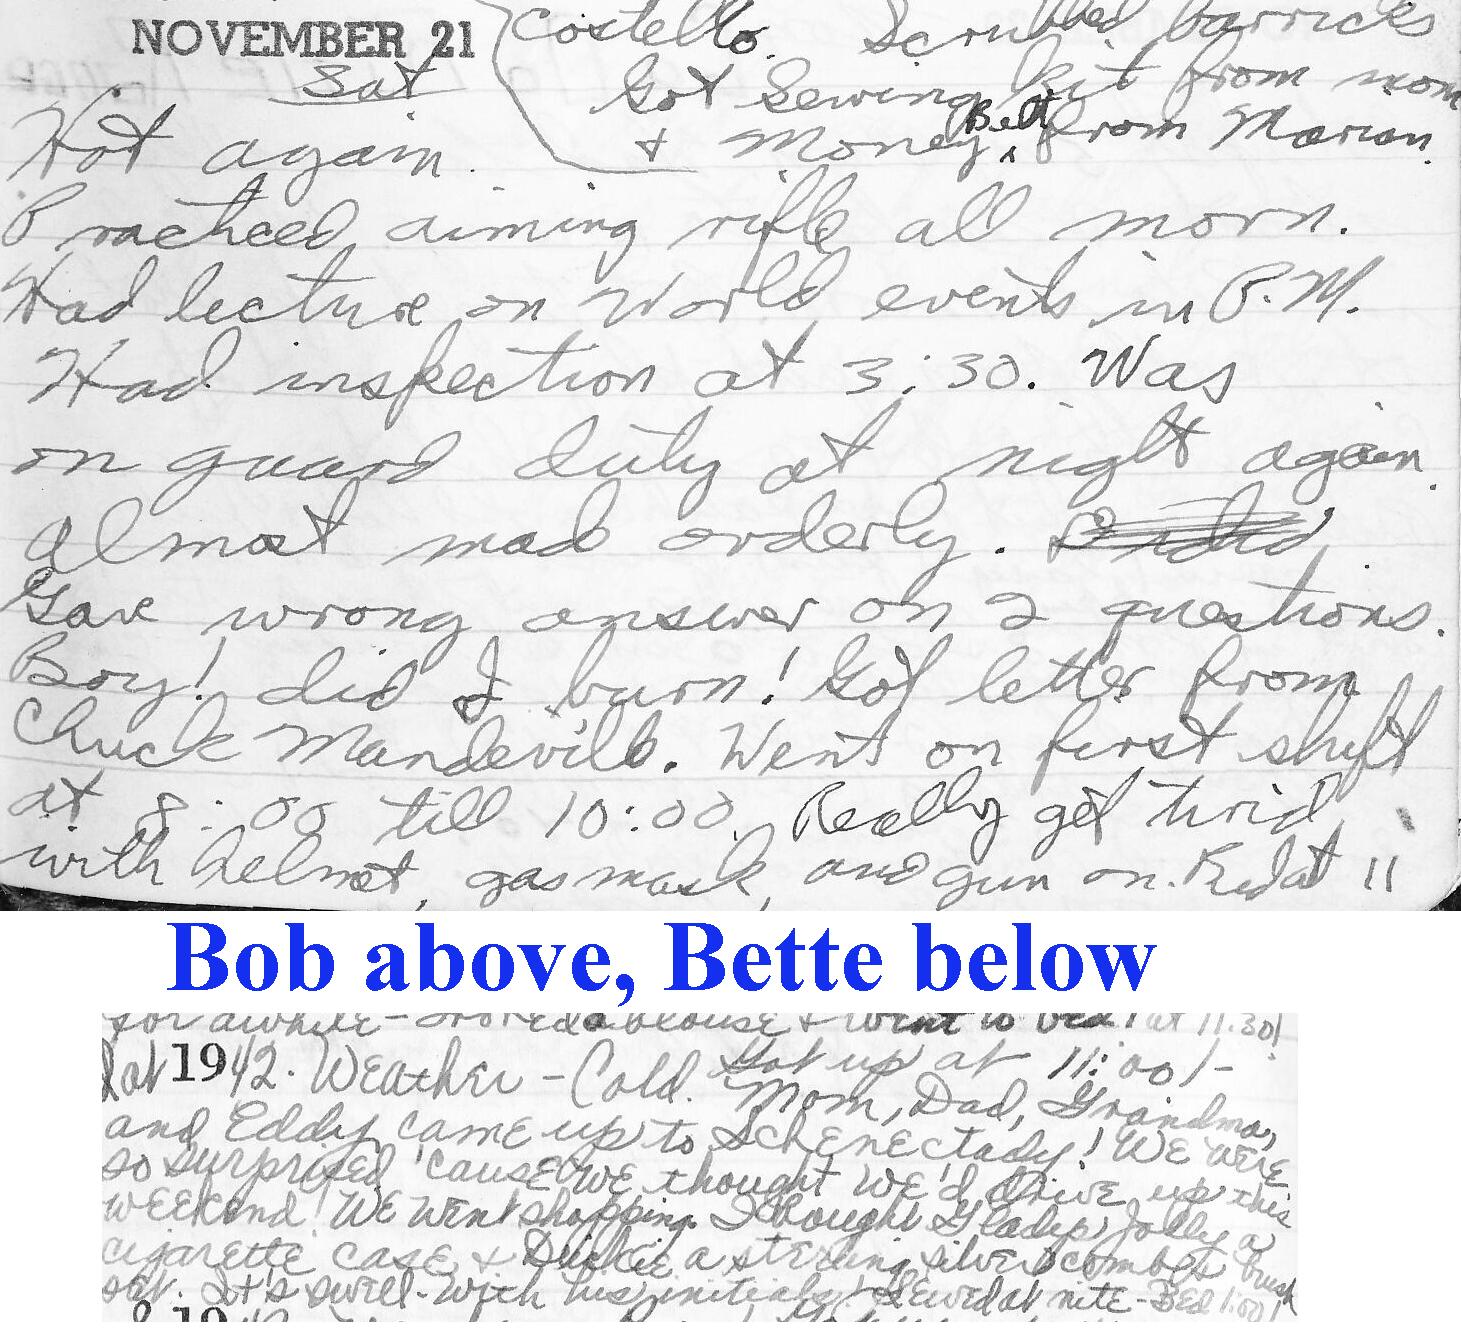 NOVEMBER 21
Sat
Costello. Scrubbed barricks
Got Sewing kit from mom
& Money Belt from Marian.
Hot again.
Practiced aiming rifle all morn.
Had lecture on World events in P.M.
Had inspection at 3:30. Was
on guard duty at night again.
Almost mad orderly.
Gave wrong answer on 2 questions.
Boy! did I burn! Got letter from
Chuck Mandevill. Went on first shift
at 8:00 till 10:00. Really got tired
with helmet, gas mask, and gun on. at 11
Bob above, Bette below
for awhile - a blouse & went to bed at 11:30!
Sat 1942. Weather - Cold. Got up at 11:00! -
Mom, Dad, Grandma,
and Eddy came up to Schenectady! We were
so surprised 'cause we thought we'd drive up this
weekend! We went shopping. I bought Gladys Jolly a
cigarette case & Duckie a sterling silver comb & brush
set. It's swell - with his initials! at nite - Bed 1:00!
19